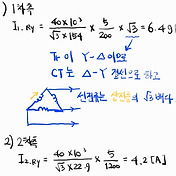 1) 1차측
I1.RY = 40×10³ / √3×154 × 5/200 × √3 = 6.49
Tr이 Y-Δ이므로
CT는 Δ-Y 결선으로 하고
선전류는 상전류의 √3 배다
2) 2차측
I2.RY = 40×10³ / √3×22.9 × 5/1200 = 4.2 [A]